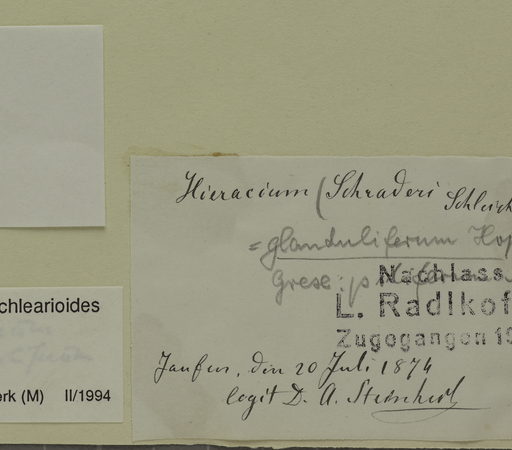 Hieracium (Schraderi Schleich
= glanduliferum Hop
Grex:
Nachlass
L. Radlkof
Zugegangen 19
Jaufen, den 20 Juli 1874
legit D. A.
chlearioides
erk (M) II/1994